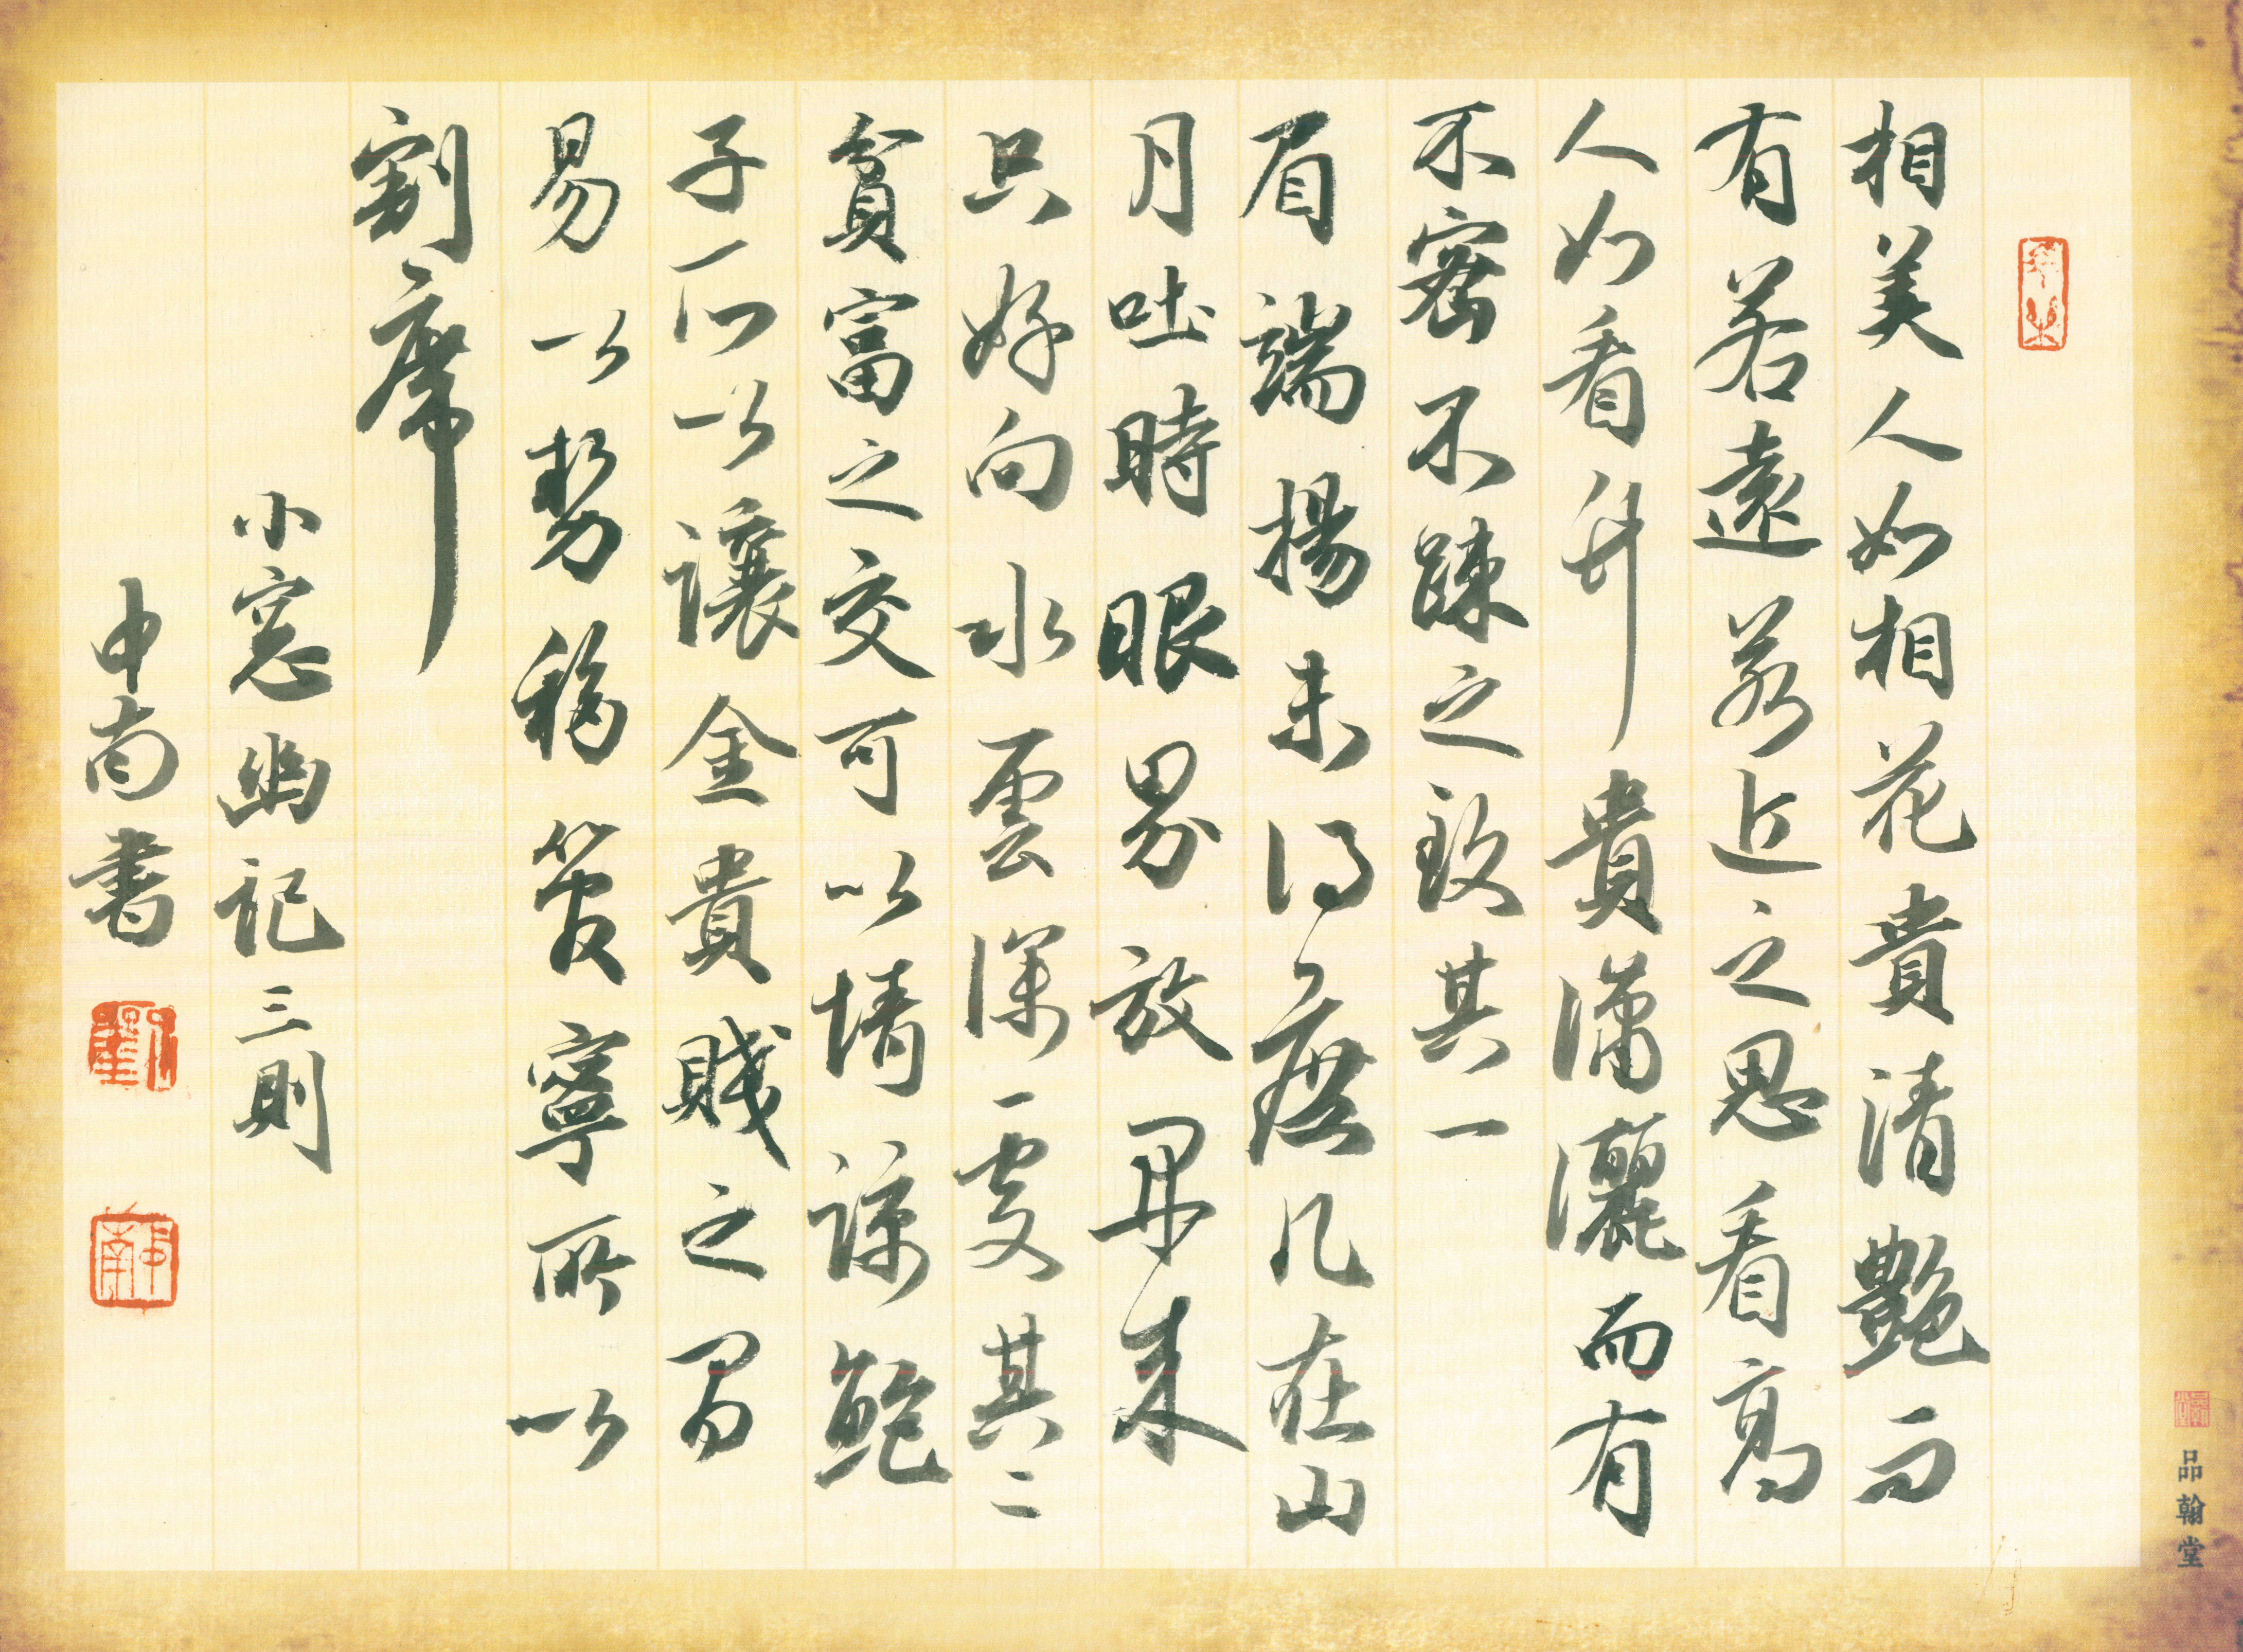 相美人如相花貴清艷而
有若遠若近之思看高
人如看竹貴瀟灑而有
不密不踈之致其一
眉端揚未得庶几在山
月吐時眼界放開來
只好向水雲深處其二
貧富之交可以情諒鮑
子所以讓金貴賤之間
易以勢移管寧所以
割席
小窓幽記三則
申南書
劉
申南
品翰堂